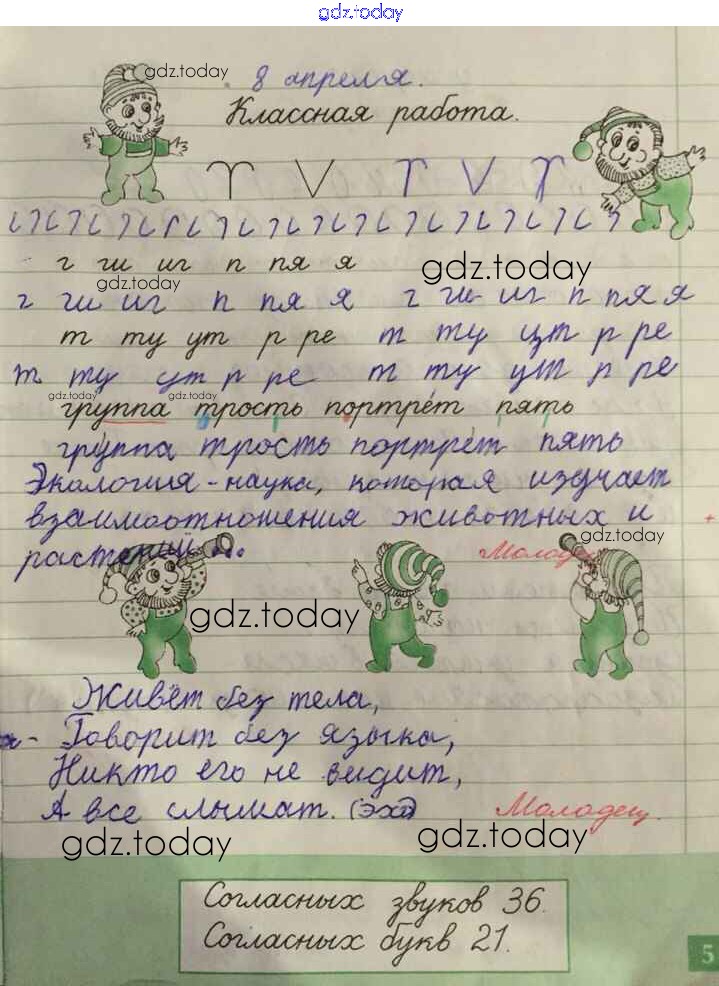 gdz.today
gdz.today
8 апреля.
Классная работа.
г ги иг п пя я
gdz.today
gdz.today
г ги иг п пя я г ги иг п пя я
т ту ут р ре т ту ут р ре
т ту ут р ре т ту ут р ре
gdz.today gdz.today
группа трость портрет пять
группа трость портрет пять
Экология - наука, которая изучает
взаимоотношения животных и
gdz.today
растений
Молодец
gdz.today
Живёт без тела,
Говорит без языка,
Никто его не видит,
А все слышат. (эхо)
Молодец.
gdz.today
gdz.today
Согласных звуков 36.
Согласных букв 21.
5